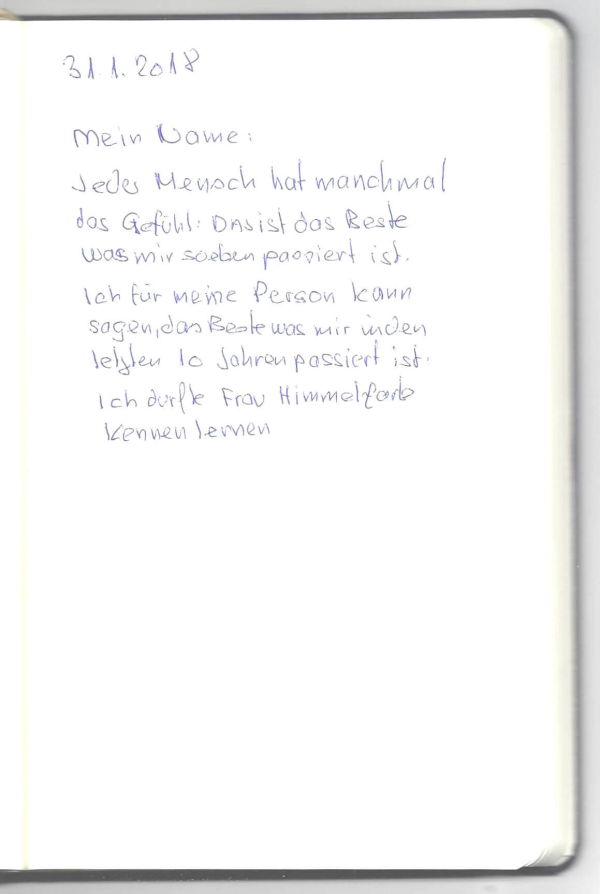 31.1.2018
Mein Name:
Jeder Mensch hat manchmal
das Gefühl: Das ist das Beste
was mir soeben passiert ist.
Ich für meine Person kann
sagen, das Beste was mir in den
letzten 10 Jahren passiert ist.
Ich durfte Frau Himmelfarb
kennen lernen